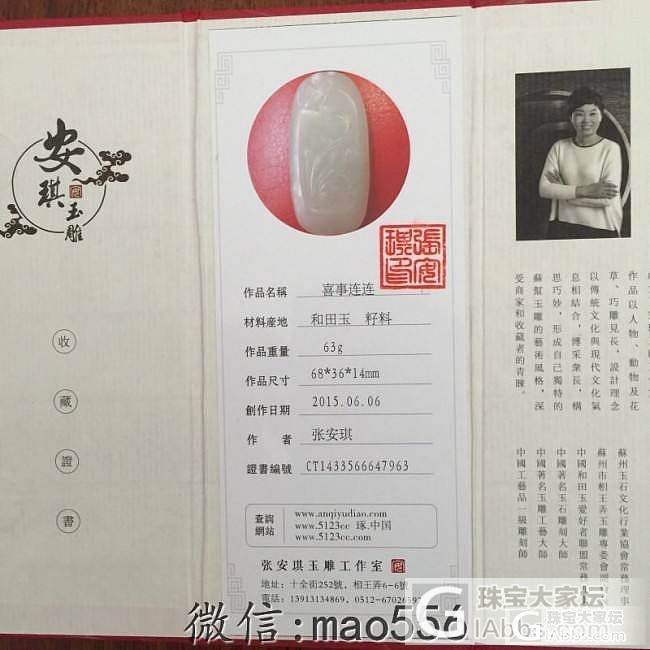 安琪玉雕
收藏證書
張安琪印
作品名稱 喜事连连
材料産地 和田玉 籽料
作品重量 63g
作品尺寸 68*36*14mm
創作日期 2015.06.06
作者 张安琪
證書編號 CT1433566647963
查詢網站
www.anqiyudiao.com
www.5123cc 琢.中国
www.5123cc.com
张安琪玉雕工作室
地址：十全街252號，相王弄6-6號
電話：13913134869，0512-6702639
作品以人物、動物及花
草、巧雕見長，設計理念
以傳統文化與現代文化氣
息相結合，博采衆長，構
思巧妙，形成自己獨特的
蘇幫玉雕的藝術風格，深
受商家和收藏者的青睞。
蘇州玉石文化行業協會常務理事
蘇州市相王弄玉雕專委會
中國和田玉愛好者聯盟常務
中國著名玉石雕刻大師
中國著名玉雕工藝大師
中國工藝品一級雕刻師
微信:mao556
珠宝大家坛